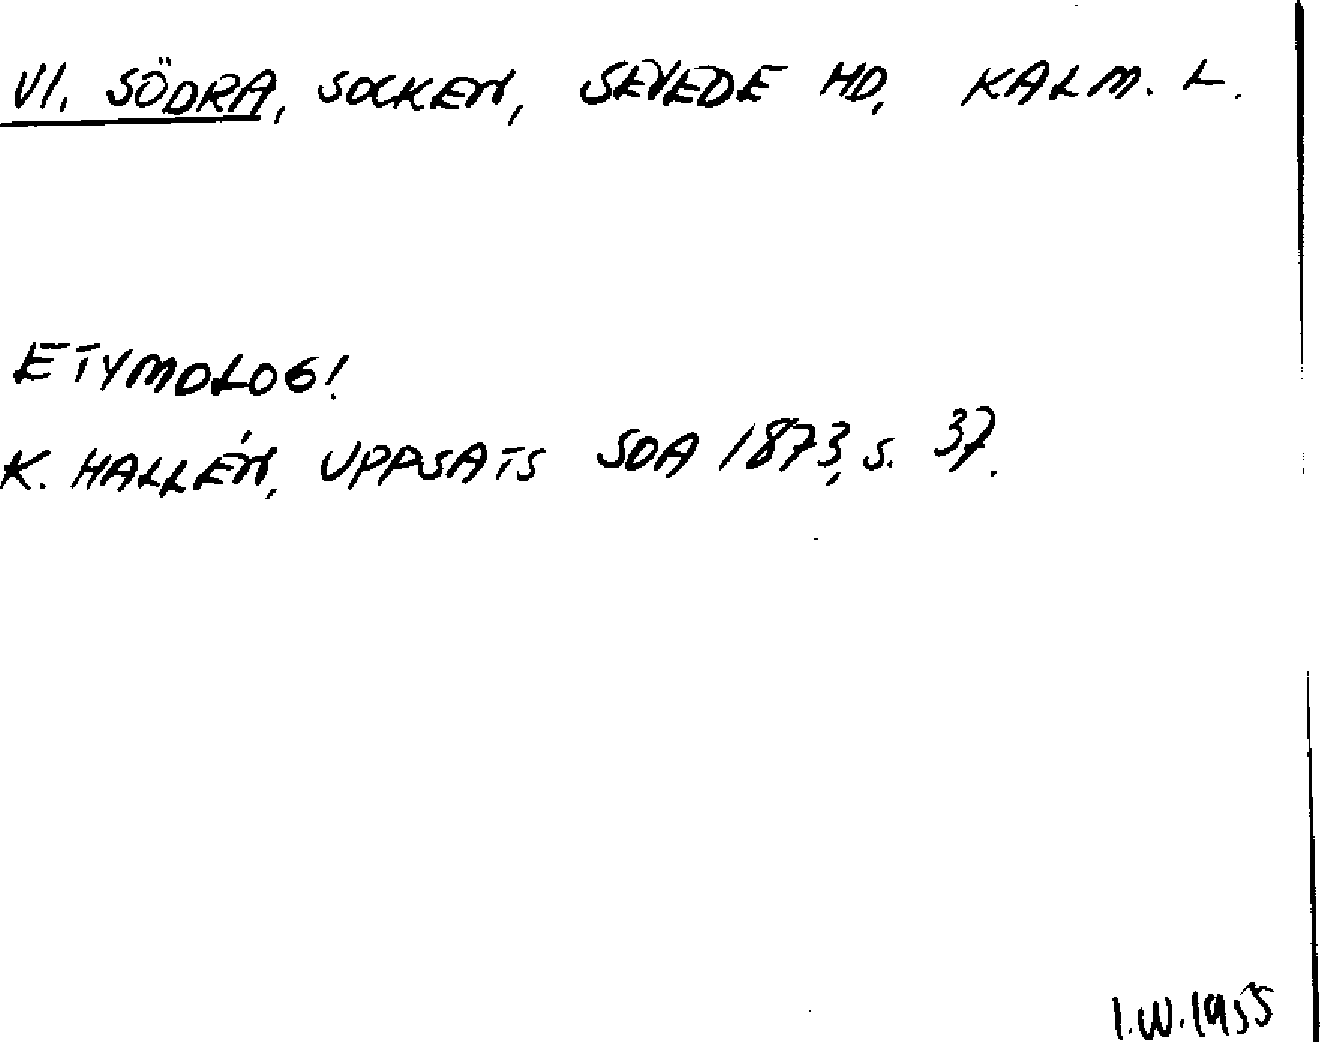 VI, SÖDRA, SOCKEN, SEVEDE HD, KALM. L.
ETYMOLOGI
K. HALLÉN, UPPSATS SOA 1873, s. 37.
I.W. 1955